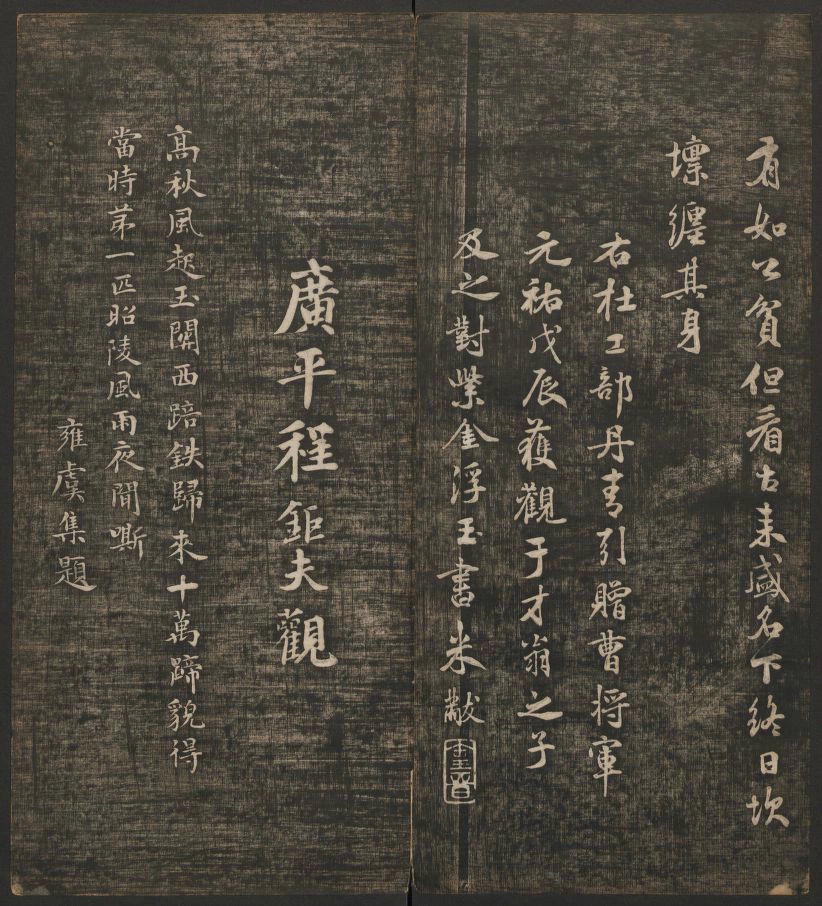 有如公貧但看古来盛名下終日坎
壈纏其身
右杜工部丹青引贈曹将軍
元祐戊辰獲觀于才翁之子
及之對紫金浮玉書米黻
廣平程鉅夫觀
高秋風起玉關西踣鉄歸来十萬蹄貌得
當時苐一匹昭陵風雨夜聞嘶
雍虞集題